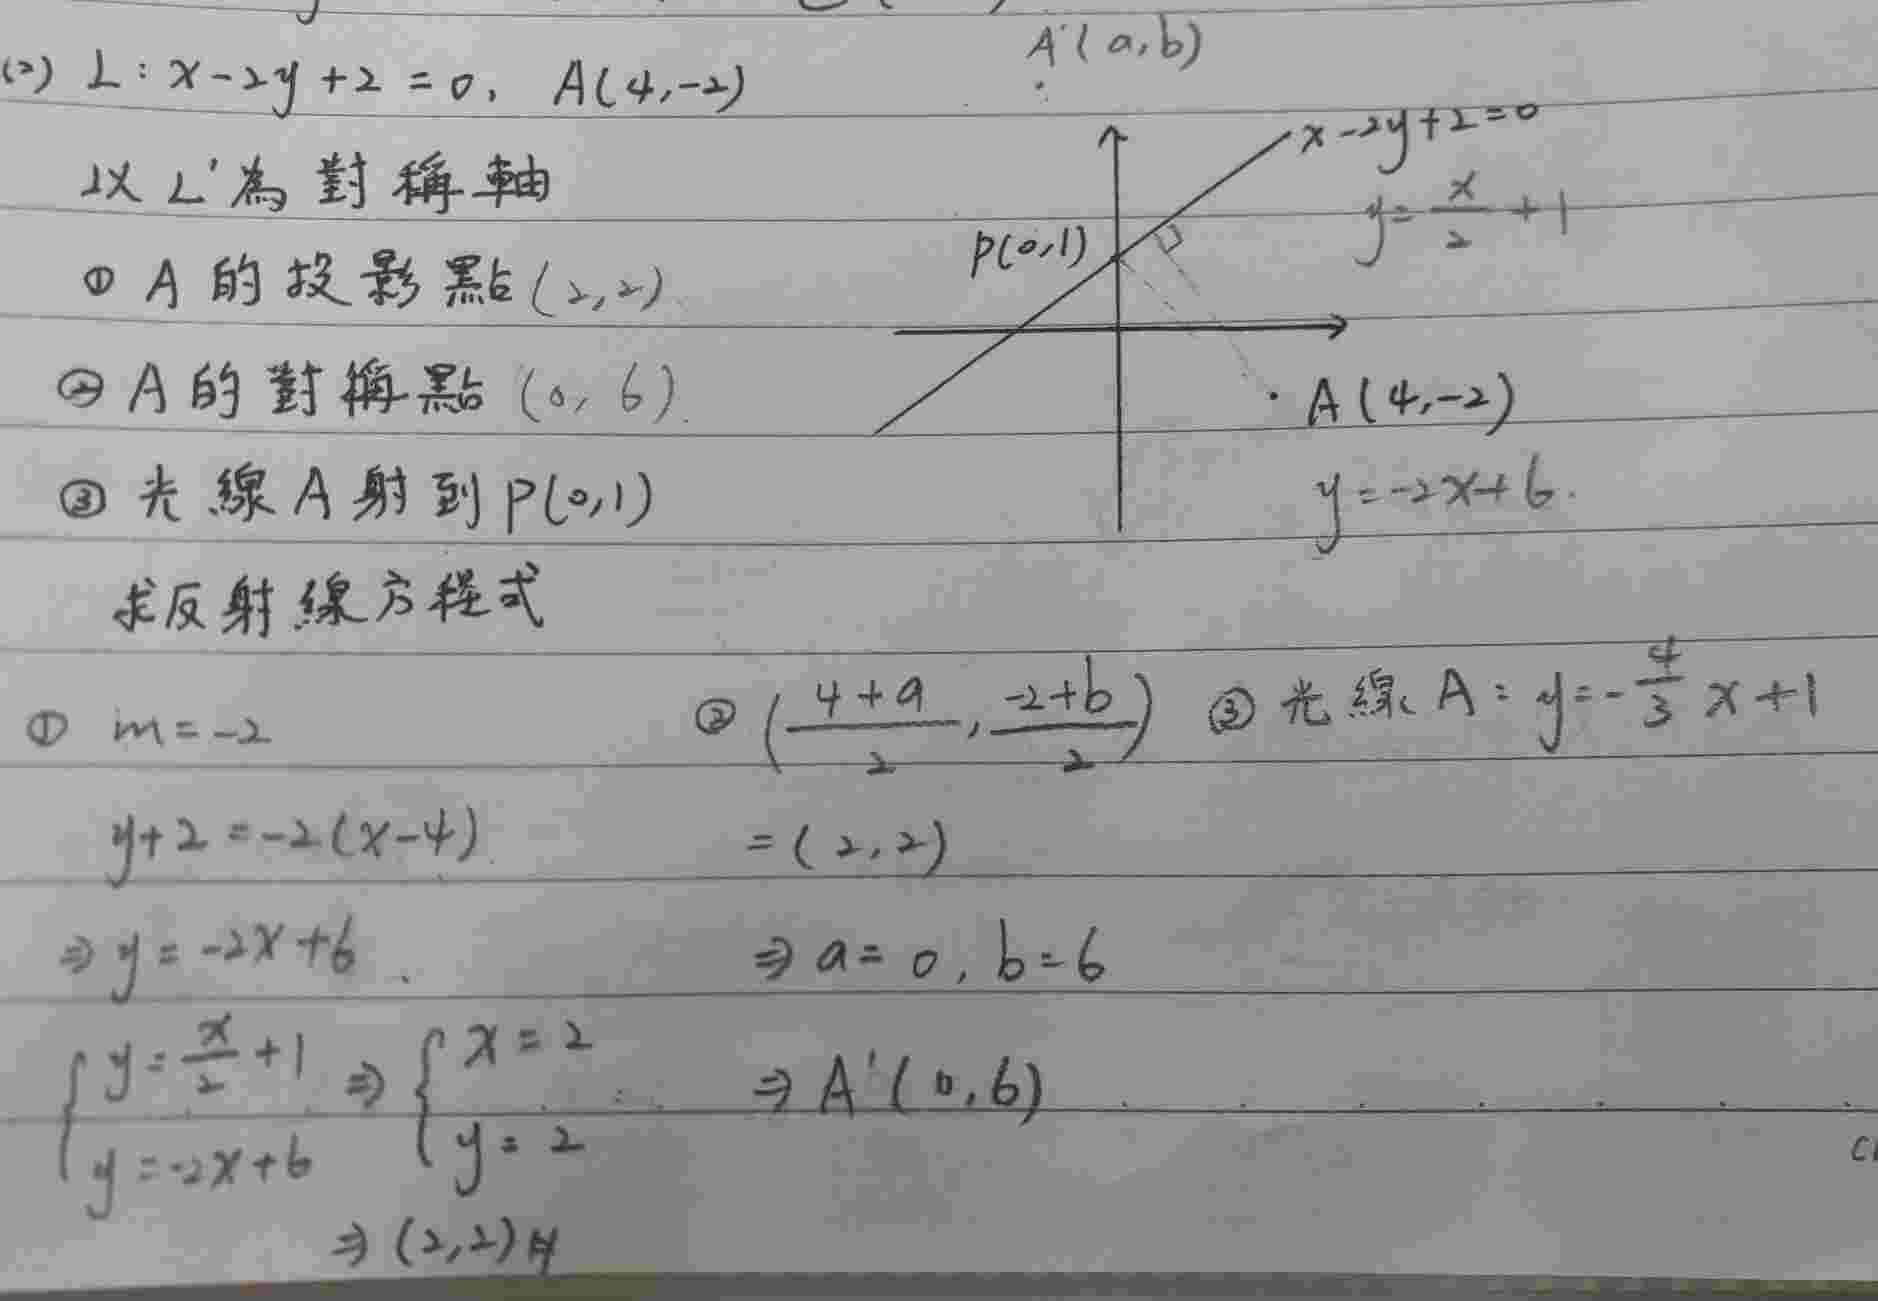 (2) L : x-2y+2=0, A(4,-2)
以L'為對稱軸
① A的投影點(2,2)
② A的對稱點(0,6)
③ 光線A射到P(0,1)
求反射線方程式
A'(a,b)
x-2y+2=0
y=x/2+1
P(0,1)
A(4,-2)
y=-2x+6.
① m=-2
y+2=-2(x-4)
⇒ y=-2x+6
{ y=x/2+1 ⇒ { x=2
y=-2x+6 y=2
⇒ (2,2)
② ((4+a)/2, (-2+b)/2)
=(2,2)
⇒ a=0, b=6
⇒ A'(0,6)
③ 光線A : y=-4/3 x+1